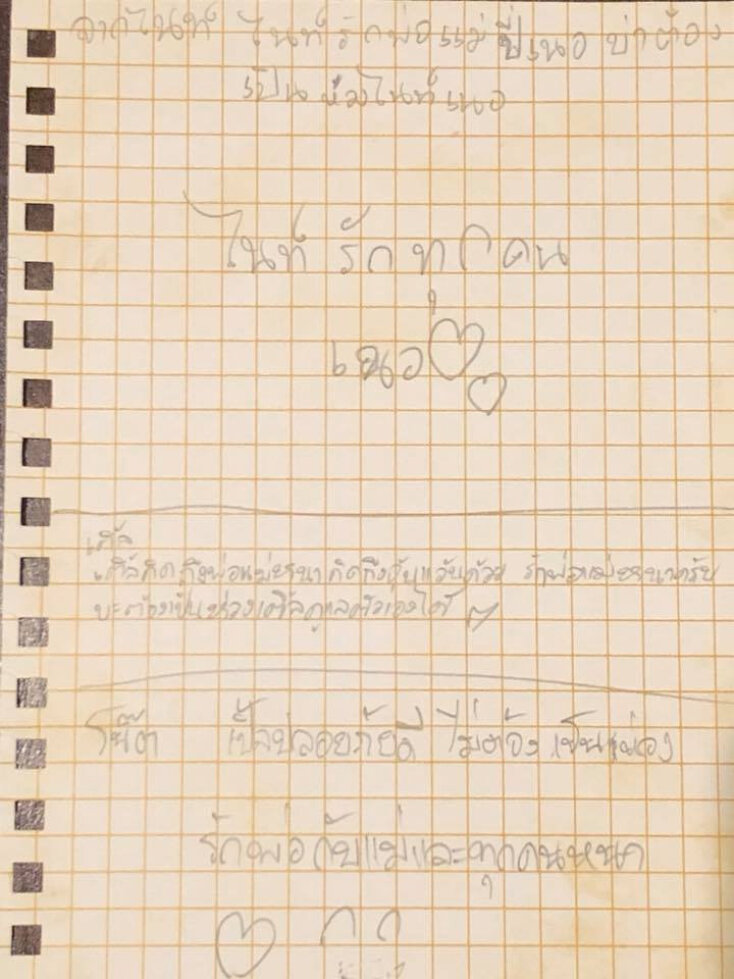 จากไนท์ ไนท์รักพ่อแม่ ปี่เนอ บ่าต้อง
เป็น ห่วงไนท์เนอ
ไนท์ รัก ทุกคน
เนอ
เติ้ล
เติ้ลคิดถึงพ่อแม่ คิดถึง รักพ่อแม่
บะต้องเป็นห่วงเติ้ลดูแลตัวเองได้
โน๊ต เป้ลปลอยภัยดี ไม่ต้อง เป็นห่วง
รักพ่อกับแม่และทุกคนหนา